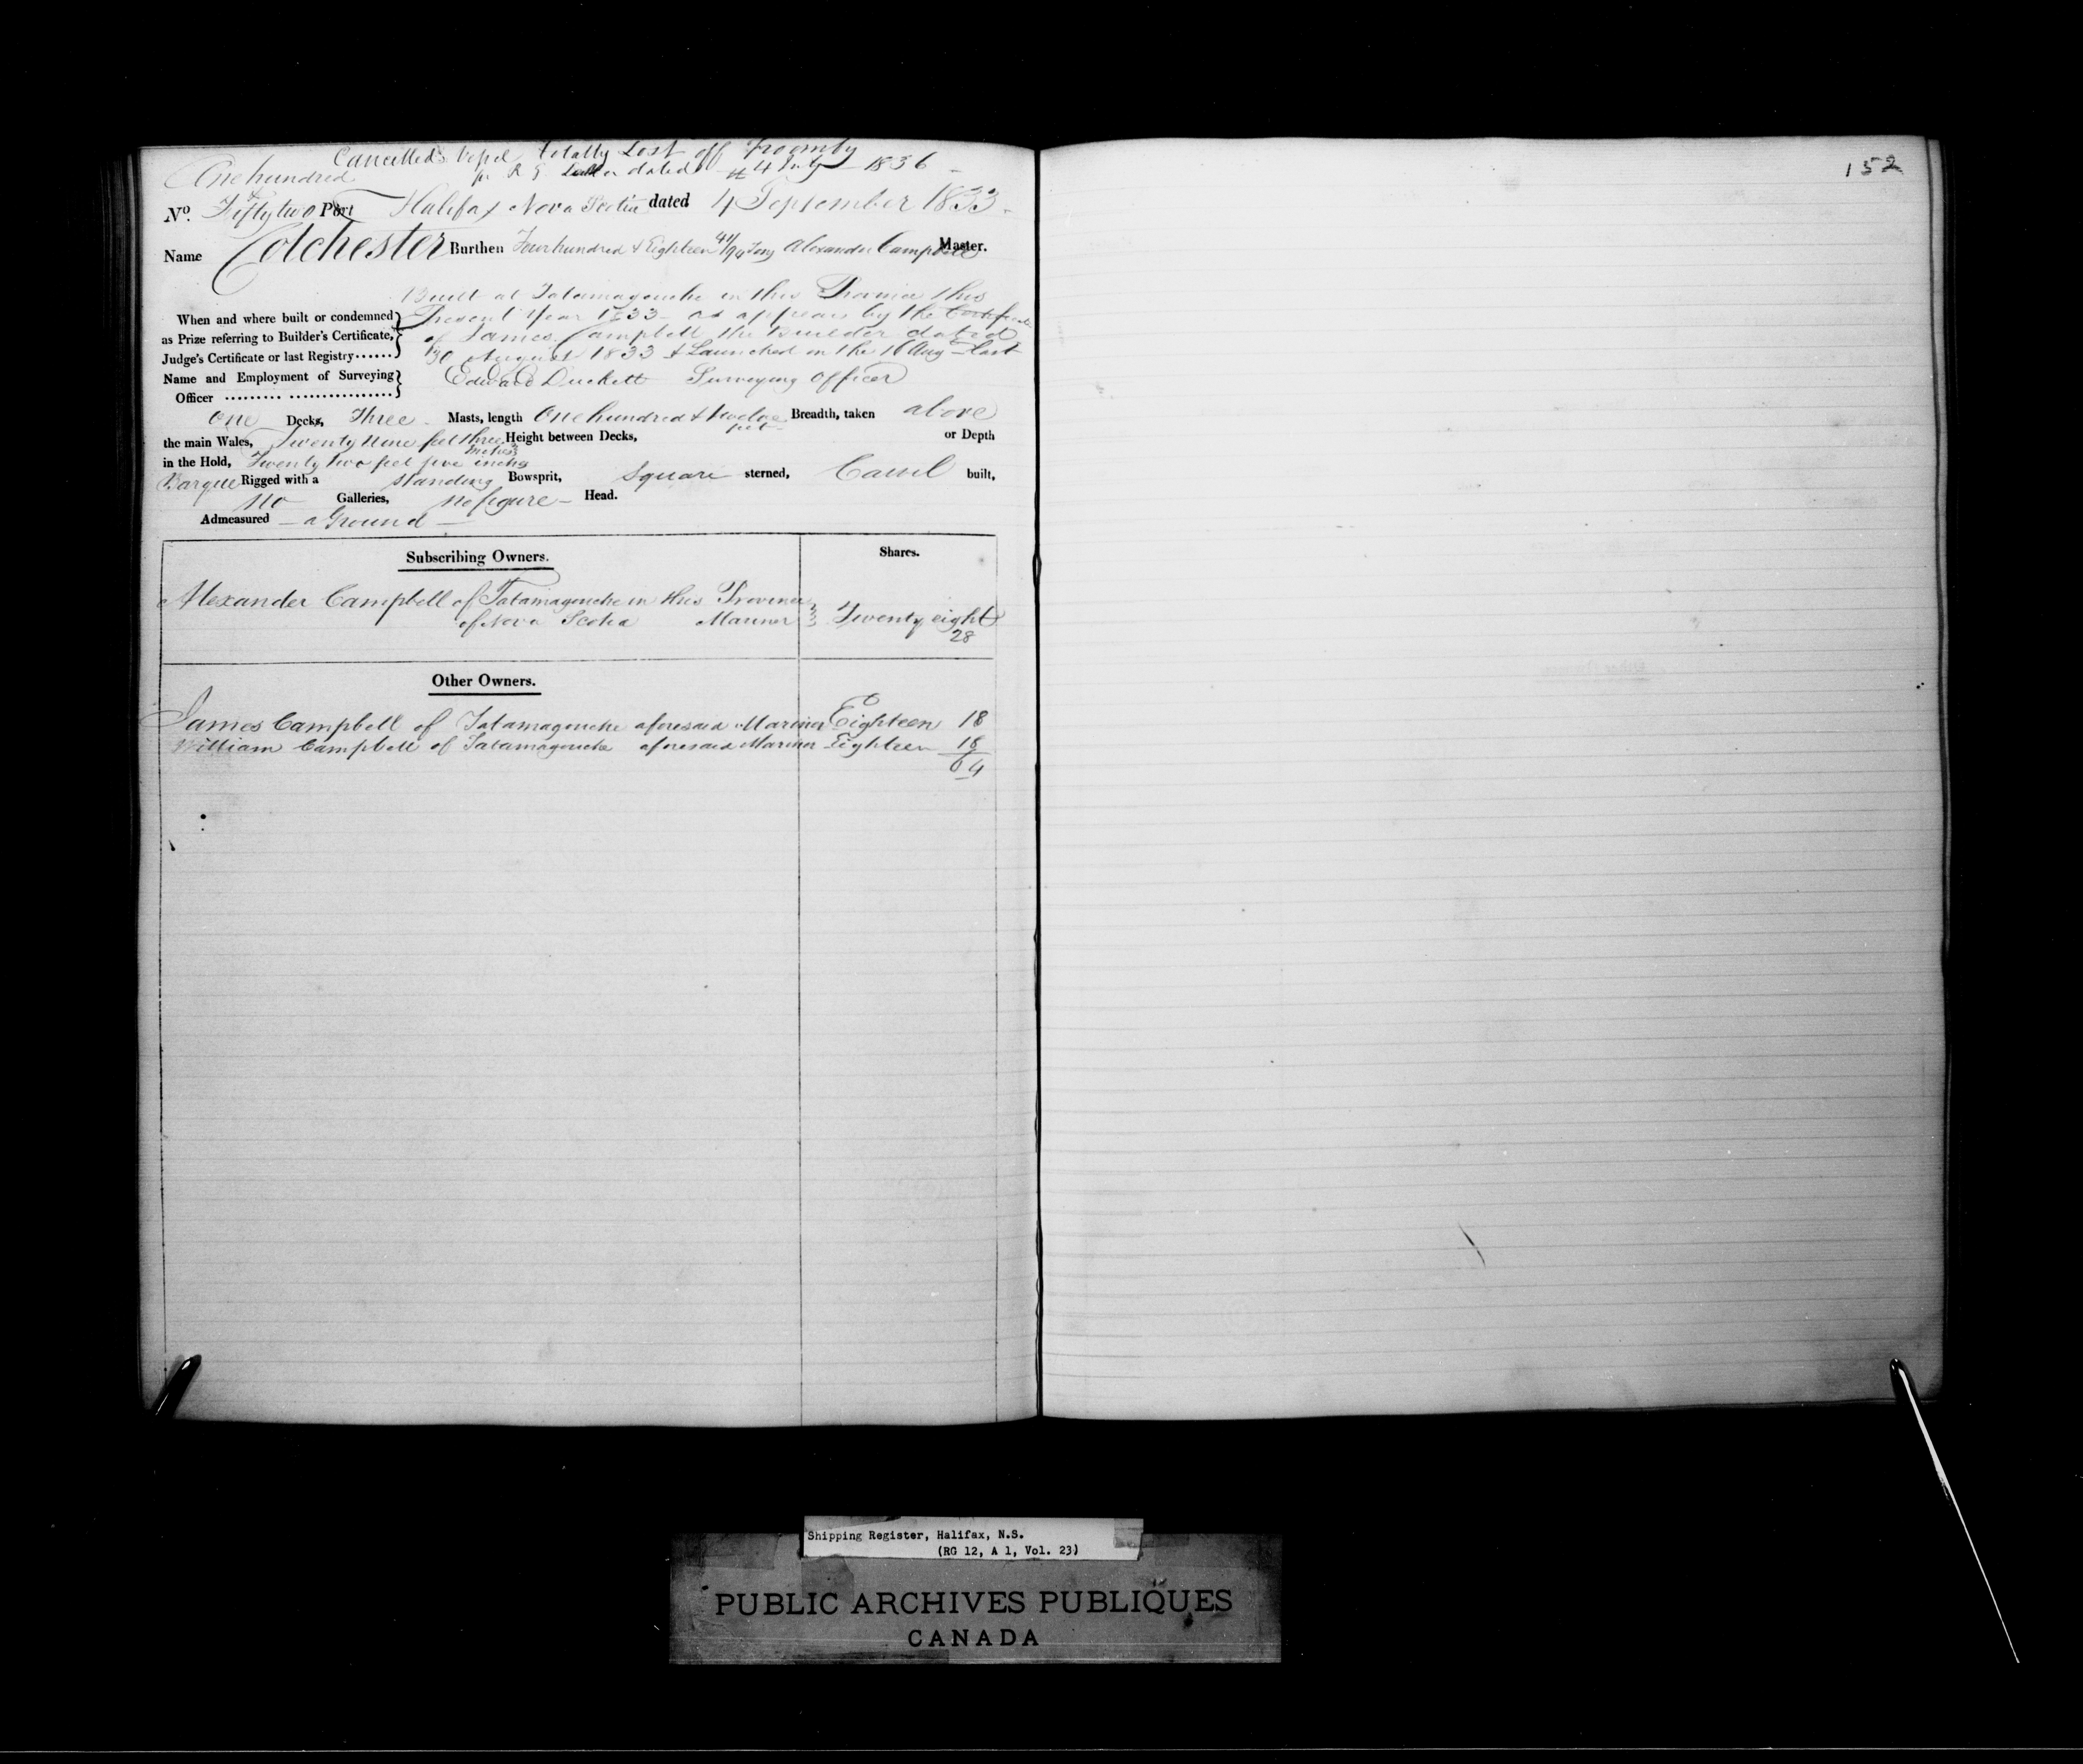 Cancelled Vessel totally Lost off
pr R G Letter dated 4 July 1836
152
One hundred
&
No. Fifty two Port Halifax Nova Scotia dated 4 September 1833
Name Colchester Burthen Four hundred & Eighteen 41/94 Tons Alexander Campbell Master.
Built at Tatamagouche in this Province this
When and where built or condemned } Present Year 1833 as appears by the Certificate
as Prize referring to Builder's Certificate, of James Campbell the Builder dated
Judge's Certificate or last Registry...... 30 August 1833 & Launched on the 16 Aug last
Name and Employment of Surveying } Edward Duckett Surveying Officer
Officer ......... .................
One Decks, Three Masts, length One hundred & twelve feet Breadth, taken above
the main Wales, Twenty Nine feet three inches Height between Decks, or Depth
in the Hold, Twenty two feet five inches
Barque Rigged with a standing Bowsprit, Square sterned, Carvel built,
No Galleries, no figure Head.
Admeasured a Ground
Subscribing Owners. Shares.
Alexander Campbell of Tatamagouche in this Province
of Nova Scotia Mariner } Twenty eight
28
Other Owners.
James Campbell of Tatamagouche aforesaid Mariner Eighteen 18
William Campbell of Tatamagouche aforesaid Mariner Eighteen 18
64
Shipping Register, Halifax, N.S.
(RG 12, A 1, Vol. 23)
PUBLIC ARCHIVES PUBLIQUES
CANADA